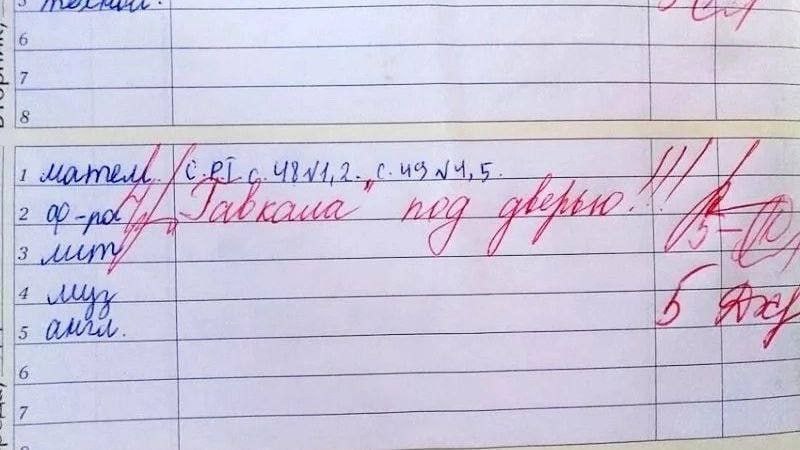 5 технол.
6
7
8
Вторник,
1 матем. С. РТ с. 48 №1, 2. с. 49 №4, 5.
2 ф-ра "Гавкала" под дверью!!!
3 лит 5-
4 муз 5
5 англ.
6
7